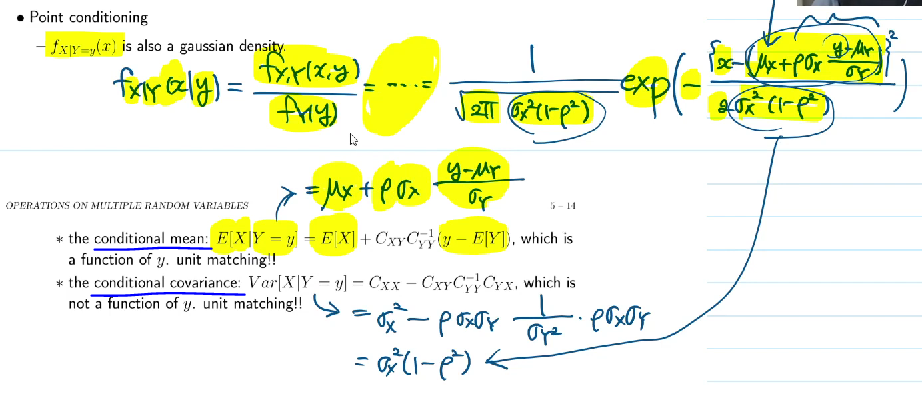 • Point conditioning
– f_{X|Y=y}(x) is also a gaussian density.
f_{X|Y}(x|y) = f_{X,Y}(x,y) / f_Y(y) = ---- = 1 / √(2π σ_X²(1-ρ²)) exp(- {x - (μ_X + ρσ_X (y-μ_Y)/σ_Y)}² / 2σ_X²(1-ρ²))
= μ_X + ρσ_X (y-μ_Y)/σ_Y
OPERATIONS ON MULTIPLE RANDOM VARIABLES 5 – 14
∗ the conditional mean: E[X|Y = y] = E[X] + C_{XY}C_{YY}^{-1}(y − E[Y]), which is
a function of y. unit matching!!
∗ the conditional covariance: Var[X|Y = y] = C_{XX} − C_{XY}C_{YY}^{-1}C_{YX}, which is
not a function of y. unit matching!!
= σ_X² - ρσ_Xσ_Y 1/σ_Y² · ρσ_Xσ_Y
= σ_X²(1-ρ²)